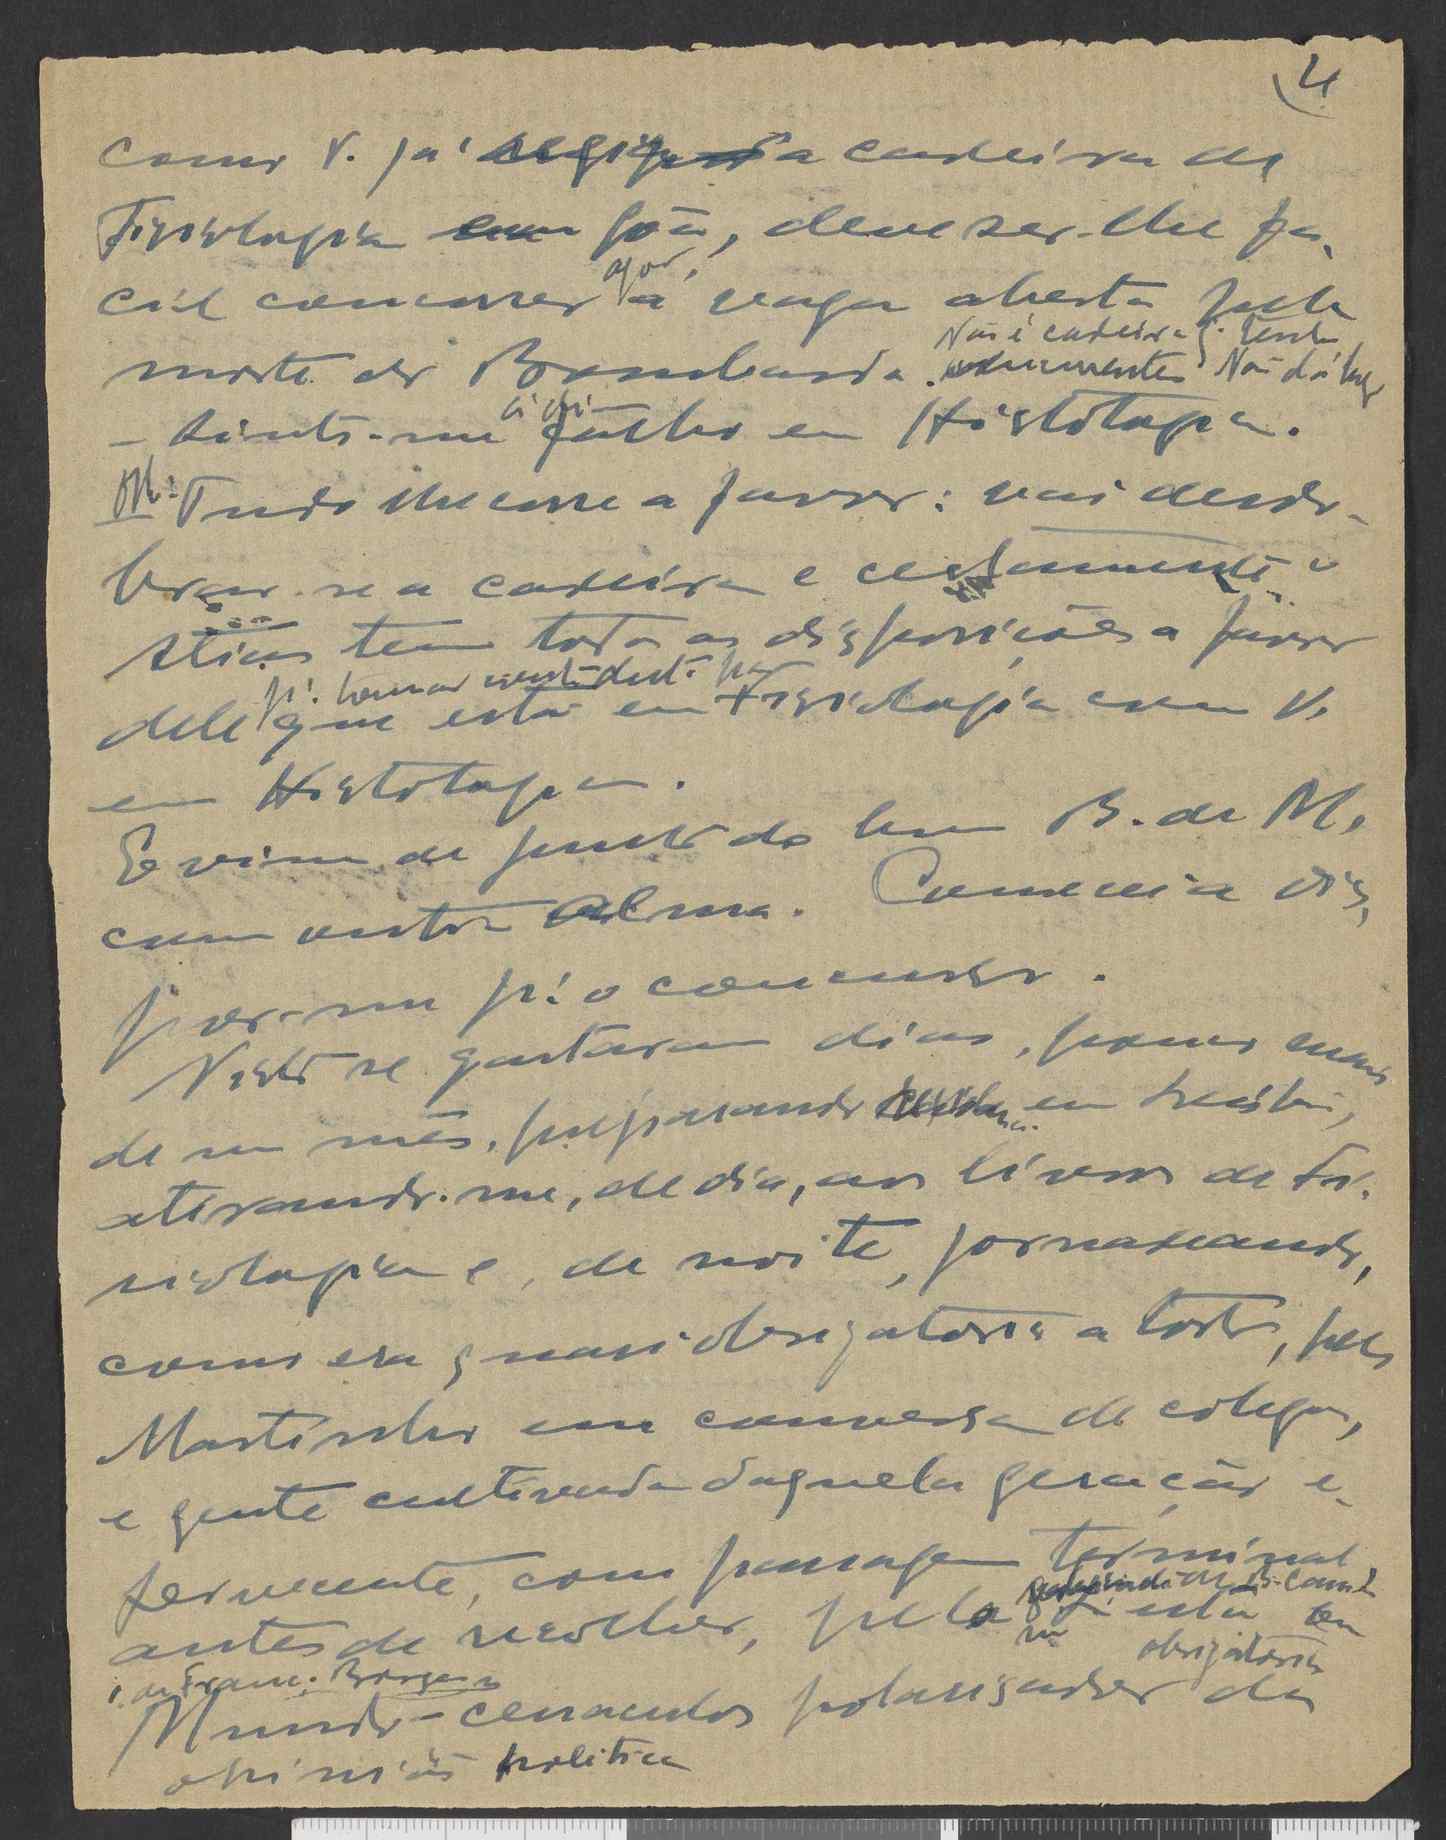 4
como V. já a cadeira de
Fisiologia em Goa, deve ser-lhe fá-
cil concorrer agora á vaga aberta pela
morte do Bombarda. Não é cadeira q. tenha Não dá
- Sinto-me melhor em Histologia.
M: Tudo lhe corre a favor: vai desdo-
brar-se a cadeira e certamente o
Atias tem todas as disposições a favor
dele p.ª tomar que está em Fisiologia com V.
em Histologia.
E vim de junto do bom B. de M.
com outra alma. Comecei a dis-
por-me p.ª o concurso.
Nisto se gastaram dias, pouco mais
de um mês, preparando em Lisboa,
atirando-me, de dia, aos livros de Fi-
siologia e, de noite, jornadeando,
como era quasi obrigatorio a todos, pelo
Martinho em conversa de colegas,
e gente cultivada daquela geração e-
fervecente, com passagem terminal
antes de recolher, pela obrigatoria
r. de Franc. Borges
Mundo - cenaculos polarisador da
opinião politica